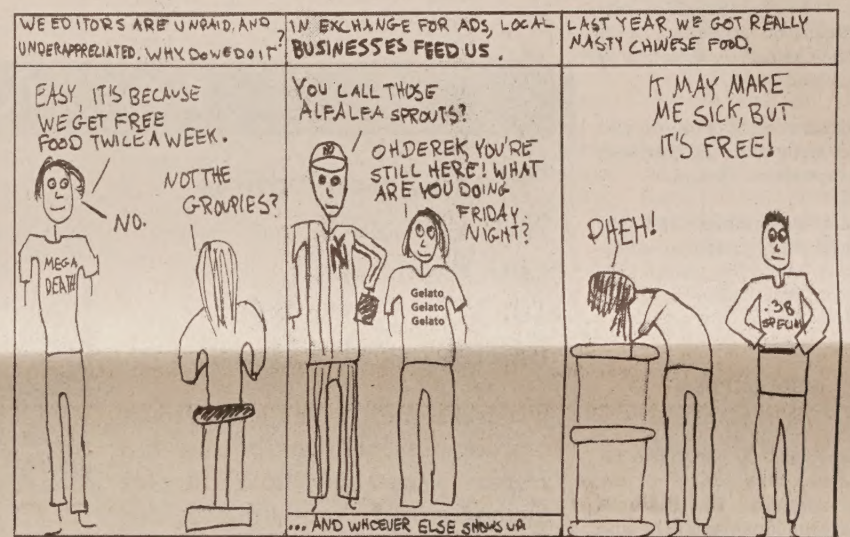 WE EDITORS ARE UNPAID, AND
UNDERAPPRECIATED. WHY DO WE DO IT?
EASY, IT'S BECAUSE
WE GET FREE
FOOD TWICE A WEEK.
NOT THE
GROUPIES?
NO.
MEGA
DEATH
IN EXCHANGE FOR ADS, LOCAL
BUSINESSES FEED US.
YOU CALL THOSE
ALFALFA SPROUTS?
OH DEREK, YOU'RE
STILL HERE! WHAT
ARE YOU DOING
FRIDAY
NIGHT?
NY
NY
Gelato
Gelato
Gelato
... AND WHOEVER ELSE SHOWS UP
LAST YEAR, WE GOT REALLY
NASTY CHINESE FOOD.
IT MAY MAKE
ME SICK, BUT
IT'S FREE!
PHEH!
.38
SPECIAL